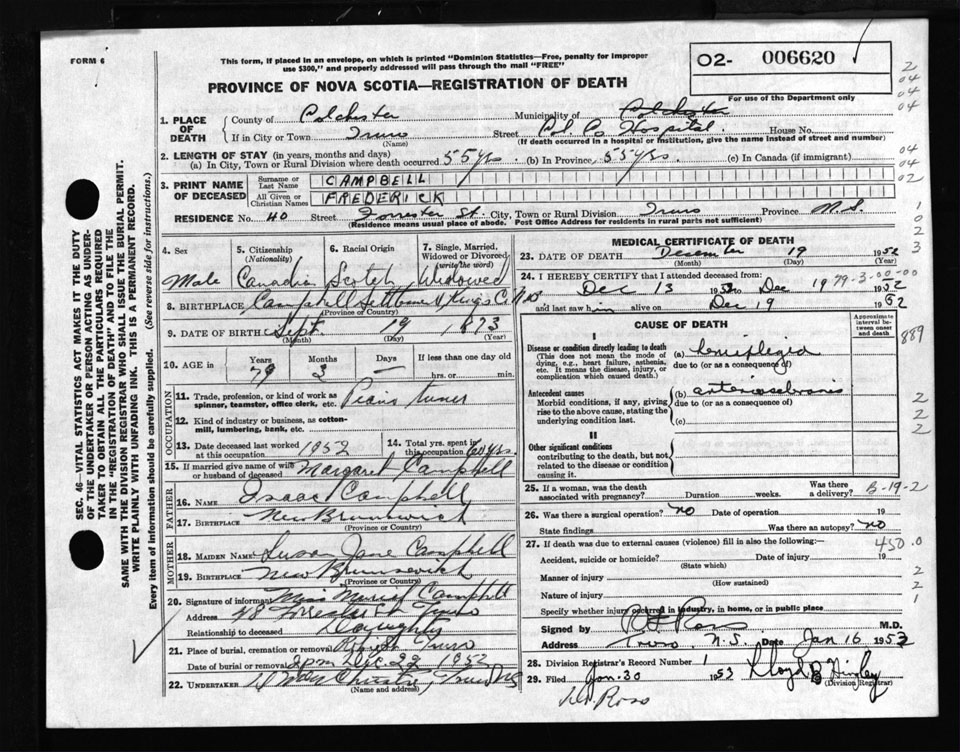 FORM 6
This form, if placed in an envelope, on which is printed "Dominion Statistics—Free, penalty for improper
use $300," and properly addressed will pass through the mail "FREE"
O2- 006620
For use of the Department only
PROVINCE OF NOVA SCOTIA—REGISTRATION OF DEATH
1. PLACE OF DEATH
County of Colchester Municipality of Colchester
If in City or Town Truro Street Col. Co. Hospital. House No.
(Name) (If death occurred in a hospital or institution, give the name instead of street and number)
2. LENGTH OF STAY (in years, months and days)
(a) In City, Town or Rural Division where death occurred 55 yrs. (b) In Province 55 yrs. (c) In Canada (if immigrant)
3. PRINT NAME OF DECEASED
Surname or Last Name CAMPBELL
All Given or Christian Names FREDERICK
RESIDENCE No. 40 Street Forrester St. City, Town or Rural Division Truro Province N.S.
(Residence means usual place of abode. Post Office Address for residents in rural parts not sufficient)
4. Sex Male
5. Citizenship (Nationality) Canadian
6. Racial Origin Scotch
7. Single, Married, Widowed or Divorced (write the word) Widowed
8. BIRTHPLACE Campbell Settlement Kings C. N.B.
(Province or Country)
9. DATE OF BIRTH Sept. 19 1873
(Month) (Day) (Year)
10. AGE in Years 79 Months 3 Days — If less than one day old
hrs. or min.
OCCUPATION
11. Trade, profession, or kind of work as
spinner, teamster, office clerk, etc. Piano tuner
12. Kind of industry or business, as cotton-
mill, lumbering, bank, etc.
13. Date deceased last worked at this occupation 1952
14. Total yrs. spent in this occupation 60 yrs.
15. If married give name of wife or husband of deceased Margaret Campbell
FATHER
16. NAME Isaac Campbell
17. BIRTHPLACE New Brunswick
(Province or Country)
MOTHER
18. MAIDEN NAME Susan Jane Campbell
19. BIRTHPLACE New Brunswick
(Province or Country)
20. Signature of informant Miss Campbell
Address Forrester St Truro
Relationship to deceased
21. Place of burial, cremation or removal Truro
Date of burial or removal 2 pm Dec. 22 1952
22. UNDERTAKER Christie, Truro NS
(Name and address)
MEDICAL CERTIFICATE OF DEATH
23. DATE OF DEATH December 19 1952
(Month) (Day) (Year)
24. I HEREBY CERTIFY that I attended deceased from
Dec 13 1952 to Dec 19 1952
and last saw him alive on Dec 19 1952
79-3-00-00
CAUSE OF DEATH
Approximate interval between onset and death
I
Disease or condition directly leading to death
(This does not mean the mode of dying, e.g., heart failure, asthenia, etc. It means the disease, injury, or complication which caused death.)
(a) hemiplegia
due to (or as a consequence of)
Antecedent causes
Morbid conditions, if any, giving rise to the above cause, stating the underlying condition last.
(b) arteriosclerosis
due to (or as a consequence of)
(c)
II
Other significant conditions
contributing to the death, but not related to the disease or condition causing it.
25. If a woman, was the death associated with pregnancy? Duration weeks. Was there a delivery?
B-19-2
26. Was there a surgical operation? no Date of operation 19
State findings Was there an autopsy? no
27. If death was due to external causes (violence) fill in also the following:—
450.0
Accident, suicide or homicide? Date of injury 19
(State which)
Manner of injury
(How sustained)
Nature of injury
Specify whether injury occurred in industry, in home, or in public place
Signed by Ross M.D.
Address Truro, N.S. Date Jan 16 1953
28. Division Registrar's Record Number 1
29. Filed Jan. 30 1953 Lloyd B
(Division Registrar)
Ross
2
04
04
04
04
04
02
1
0
2
3
889
2
2
2
2
2
1
SEC. 46—VITAL STATISTICS ACT MAKES IT THE DUTY
OF THE UNDERTAKER OR PERSON ACTING AS UNDER-
TAKER TO OBTAIN ALL THE PARTICULARS REQUIRED
IN THE "REGISTRATION OF DEATH" AND TO FILE THE
SAME WITH THE DIVISION REGISTRAR WHO SHALL ISSUE THE BURIAL PERMIT.
WRITE PLAINLY WITH UNFADING INK. THIS IS A PERMANENT RECORD.
Every item of information should be carefully supplied. (See reverse side for instructions.)